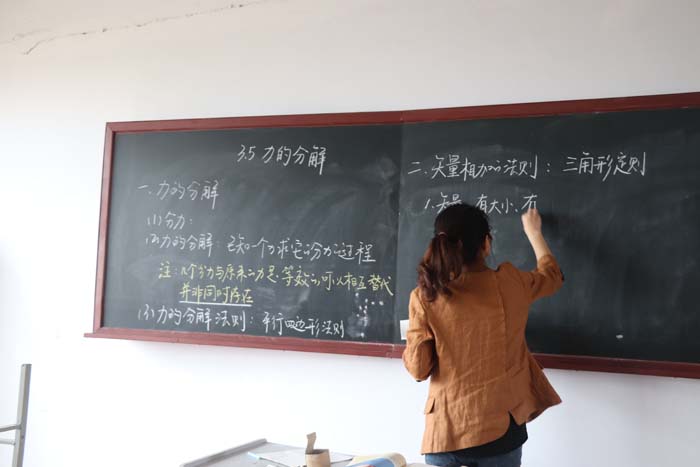 3.5 力的分解
一、力的分解
(1)分力:
(2)力的分解: 已知一个力求它的分力的过程
注: 几个分力与原来的力是等效的可以相互替代
并非同时存在
(3)力的分解法则: 平行四边形法则
二、矢量相加的法则: 三角形定则
1.矢量 有大小、有